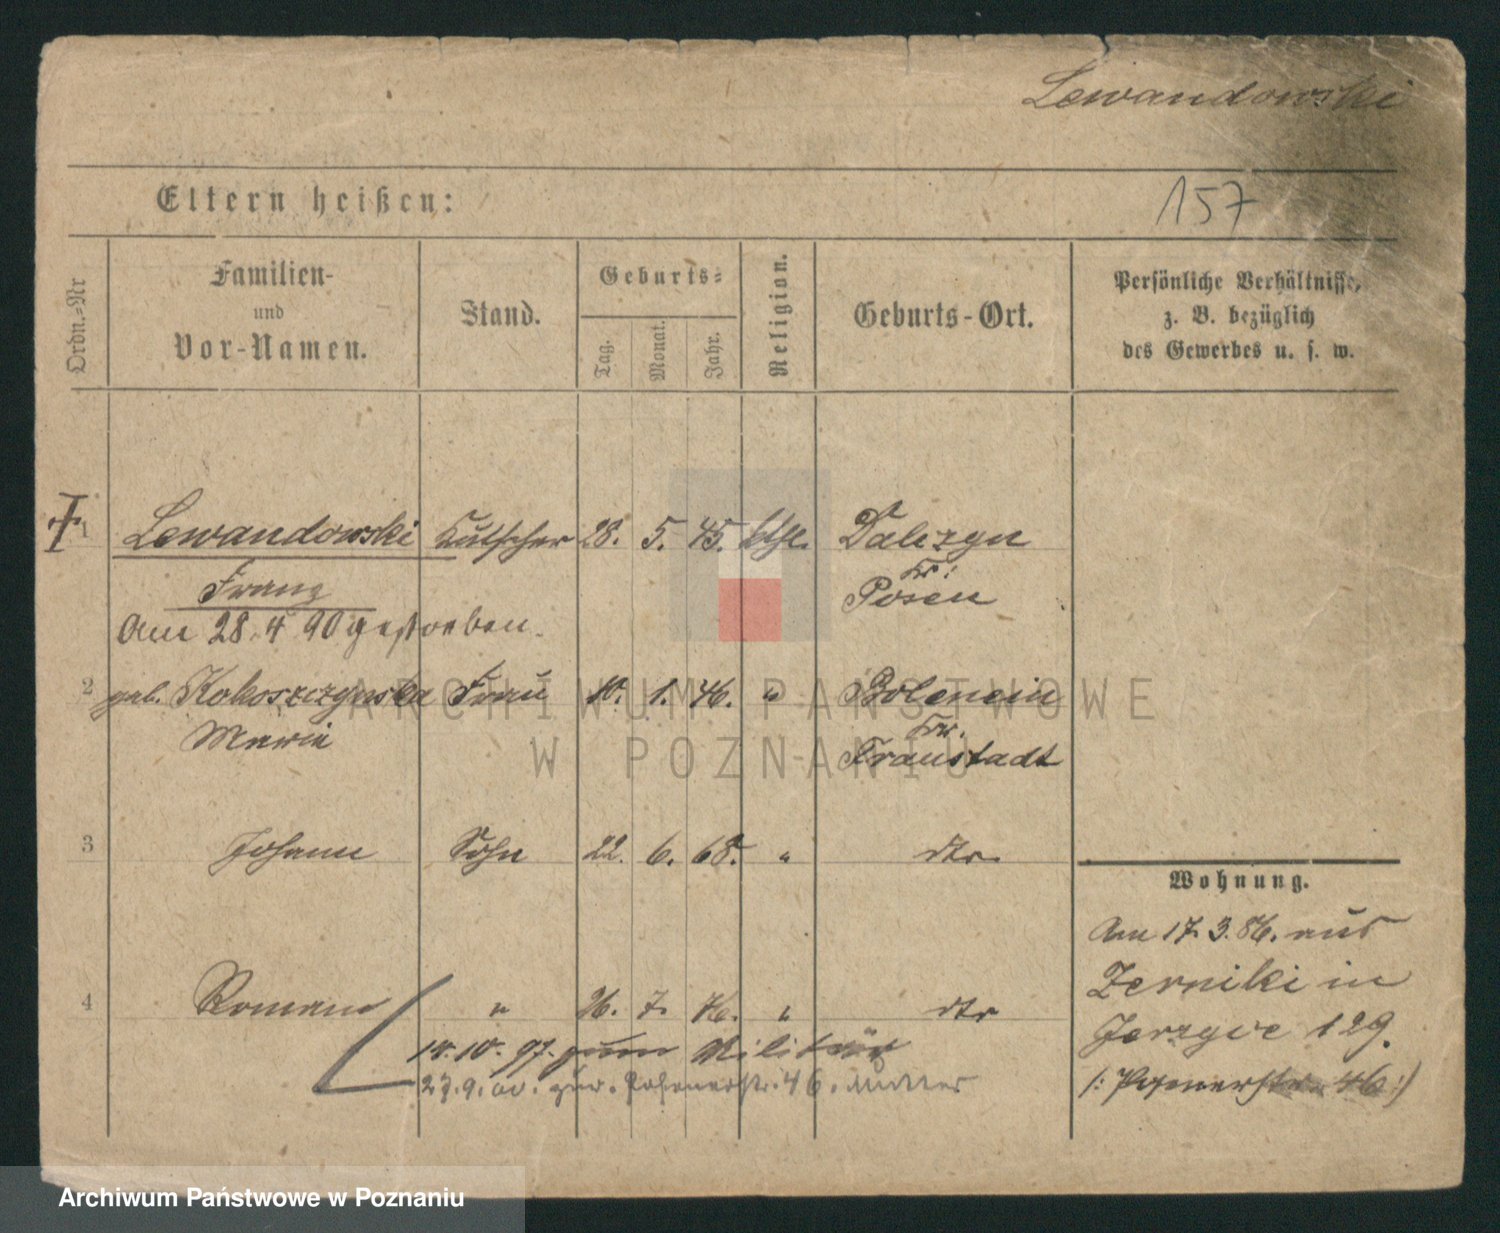 Lewandowski
157
Eltern heißen:
Ordn.-Nr
Familien-
und
Vor-Namen.
Stand.
Geburts-
Tag.
Monat.
Jahr.
Religion.
Geburts-Ort.
Persönliche Verhältnisse,
z. B. bezüglich
des Gewerbes u. s. w.
1 Lewandowski Kutscher 28. 5. 45. kthl. Dalezyn
Kr:
Franz Posen
Am 28. 4 90 gestorben.
2 geb. Kokoszczynska Frau 10. 1. 46. " Bolenein
Marie Kr.
Fraustadt
3 Johann Sohn 22. 6. 68. " dto
Wohnung.
Am 17. 3. 86. aus
4 Roman " 26. 7. 76. " dto
Zerniki in
Jerzyce 129.
18. 10. 97. zum Militär
27. 9. 00. zur. Posenerstr. 46. Mutter
/: Posenerstr. 46 :/
ARCHIWUM PAŃSTWOWE
W POZNANIU
Archiwum Państwowe w Poznaniu